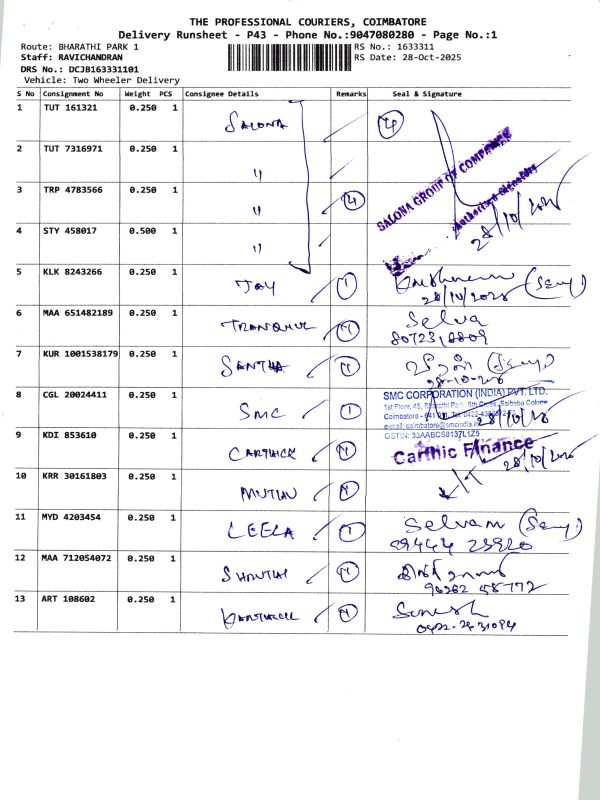 THE PROFESSIONAL COURIERS, COIMBATORE
Delivery Runsheet - P43 - Phone No.:9047080280 - Page No.:1
Route: BHARATHI PARK 1 RS No.: 1633311
Staff: RAVICHANDRAN RS Date: 28-Oct-2025
DRS No.: DCJB163331101
Vehicle: Two Wheeler Delivery
S No Consignment No Weight PCS Consignee Details Remarks Seal & Signature
1 TUT 161321 0.250 1 SALONA 4
2 TUT 7316971 0.250 1 "
SALONA GROUP OF COMPANIES
Authorised Signatory
3 TRP 4783566 0.250 1 " 4
4 STY 458017 0.500 1 " 28/10/2025
5 KLK 8243266 0.250 1 JOY 1
28/10/2025
6 MAA 651482189 0.250 1 Selva
8072318809
7 KUR 1001538179 0.250 1 SANTHA
8 CGL 20024411 0.250 1 SMC 1
SMC CORPORATION (INDIA) PVT. LTD.
1st Floor, 45, Bharathi Park 8th Cross, Saibaba Colony
Coimbatore
e-mail: coimbatore@smcindia.in
GSTIN: 33AABCS8137L1Z5
9 KDI 853610 0.250 1 CARTHICK
Carthic Finance
28/10/2025
10 KRR 30161803 0.250 1
11 MYD 4203454 0.250 1 LEELA 1 Selvam
12 MAA 712054072 0.250 1 SHANTHI
13 ART 108602 0.250 1 Suresh